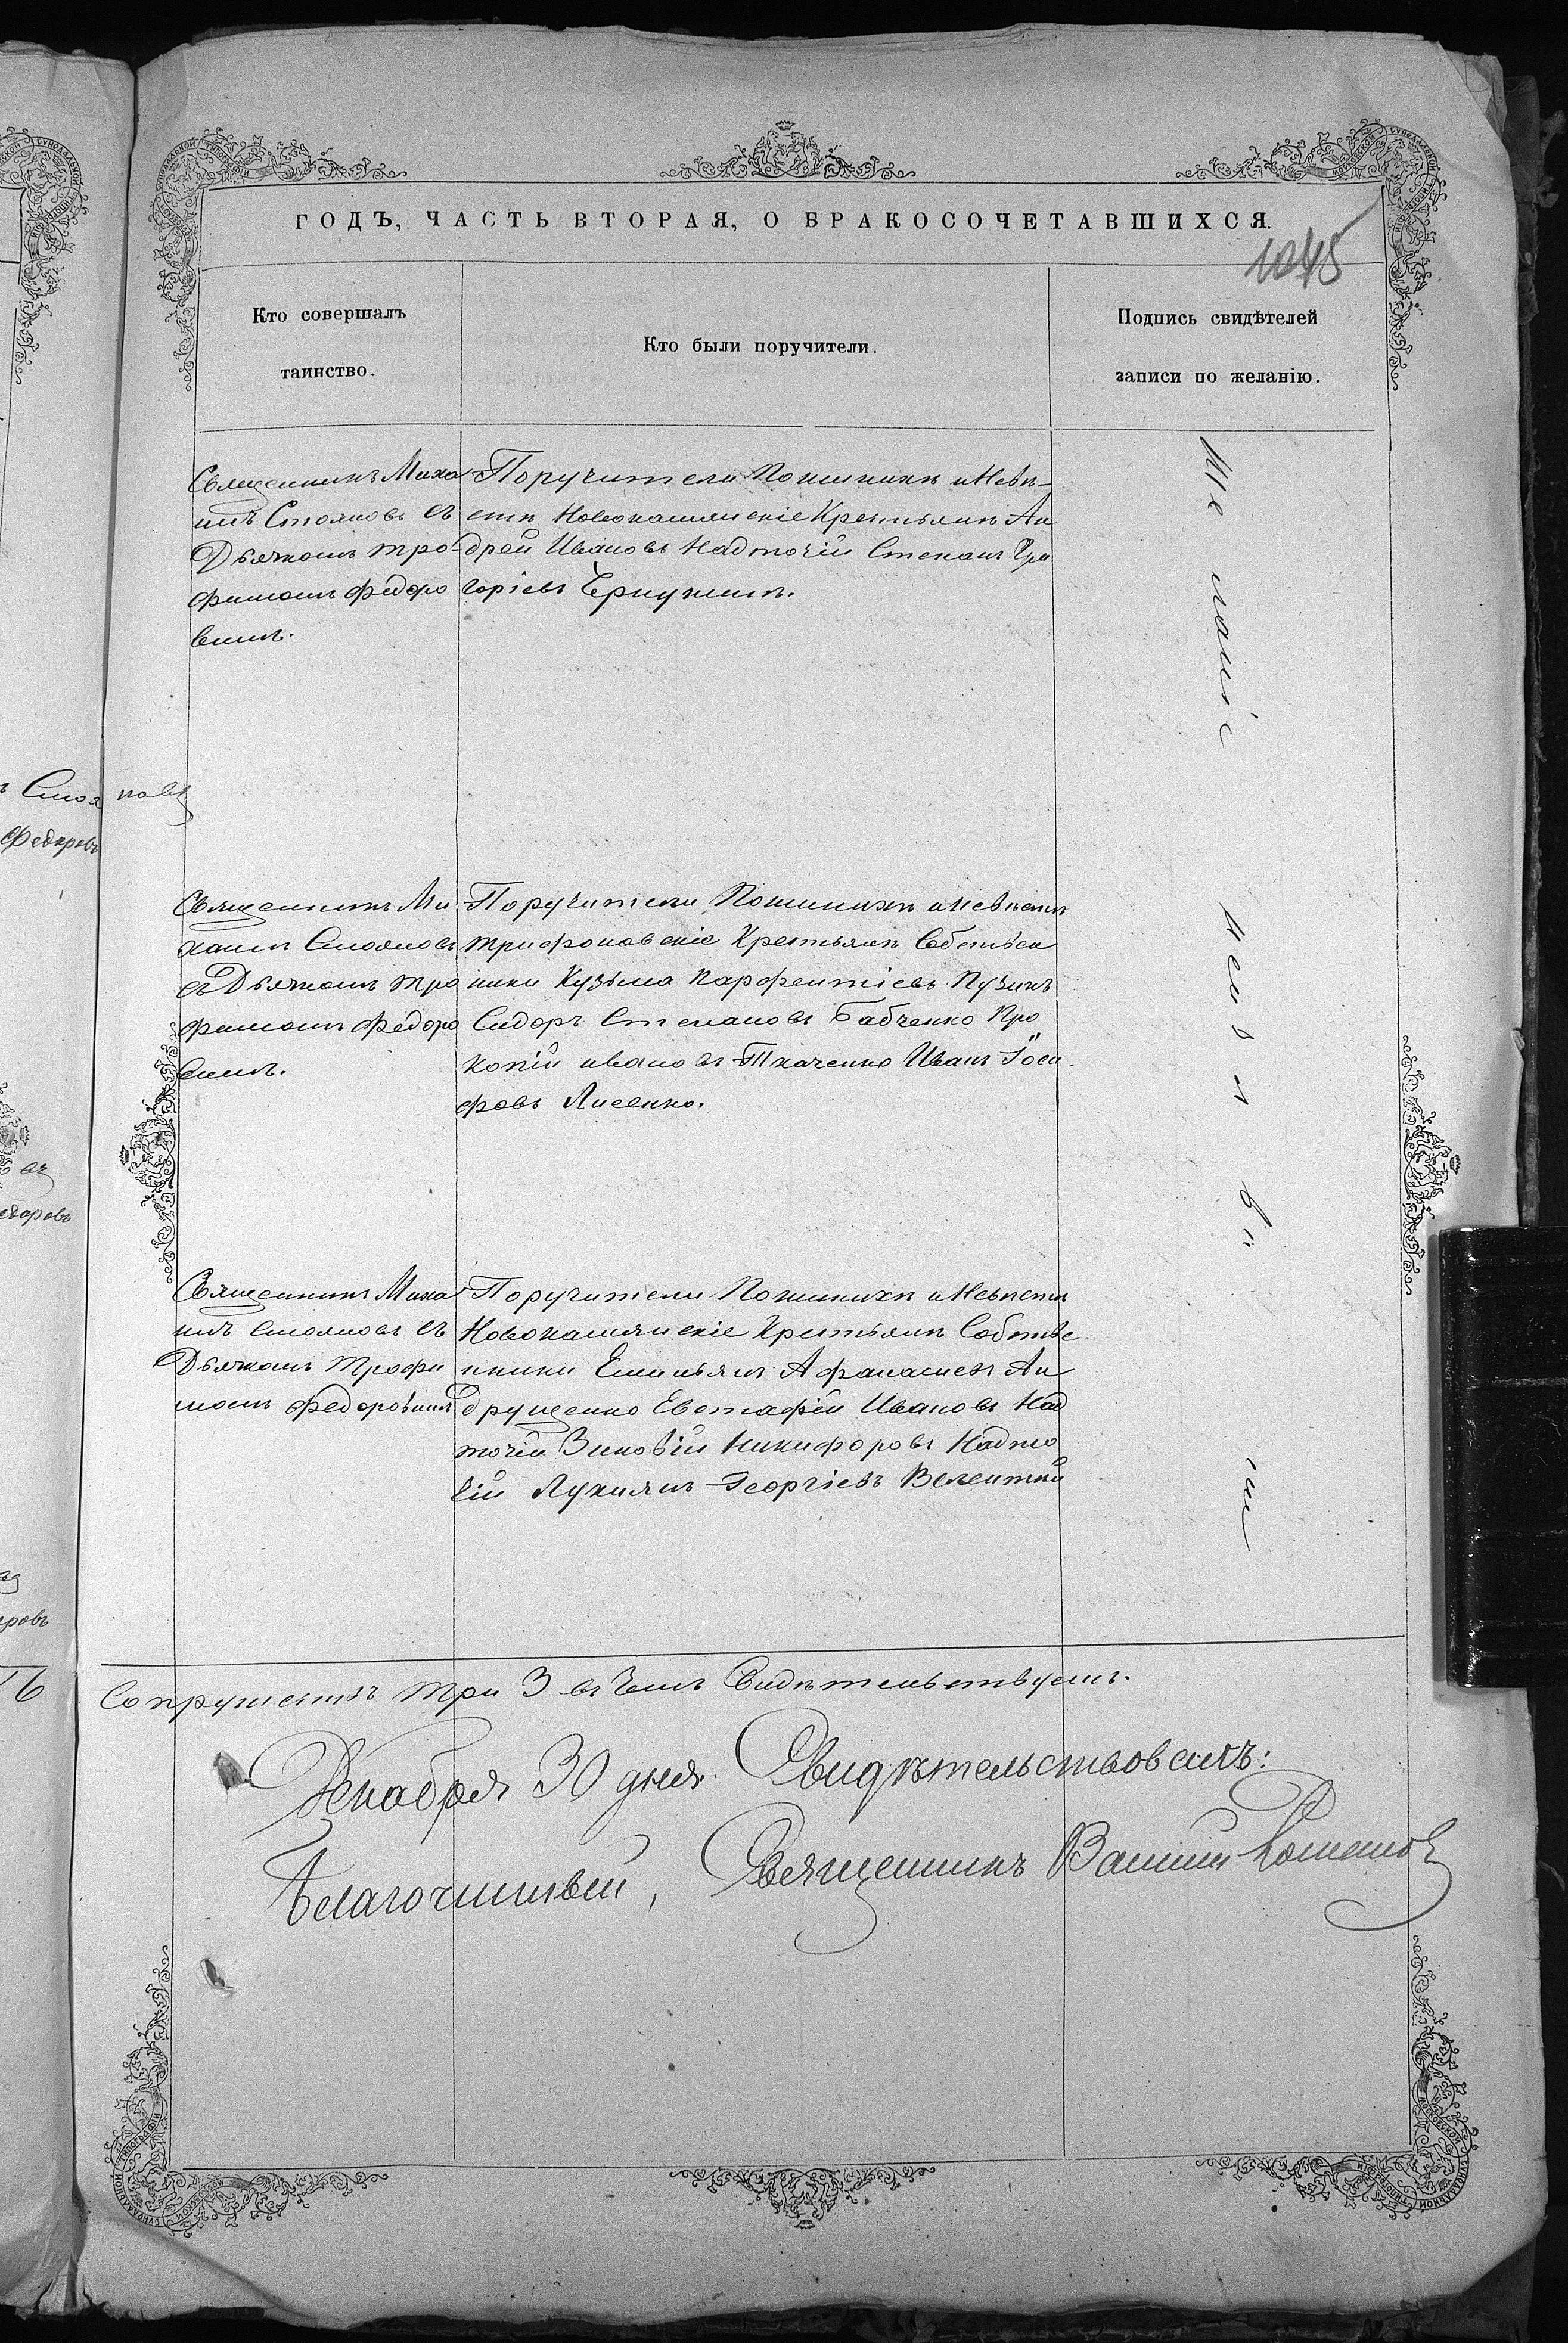 ГОДЪ, ЧАСТЬ ВТОРАЯ, О БРАКОСОЧЕТАВШИХСЯ.
1045
Кто совершалъ
таинство.
Кто были поручители.
Подпись свидѣтелей
записи по желанію.
Священникъ Миха
илъ Стояновъ съ
Дьячкомъ Тро-
фимомъ Федоро
вимъ.
Поручители по женихѣ и невѣ-
стѣ Крестьяне Ан
дрей Ивановъ Надточій Степанъ Гри
горіевъ
Священникъ Ми
хаилъ Стояновъ
съ Дьячкомъ Тро
фимомъ Федоро
вимъ.
Поручители по женихѣ и невѣстѣ
Трифоновскіе Крестьяне Собствен
ники Кузьма Парфентіевъ Пузикъ
Сидоръ Степановъ Бабченко Про
копій Ивановъ Ткаченко Иванъ Іоси
фовъ Лисенко.
Священникъ Миха
илъ Стояновъ съ
Дьячкомъ Трофи
момъ Федоровимъ
Поручители по женихѣ и невѣстѣ
Крестьяне Собстве
нники Емильянъ Афанасиевъ Ан
друщенко Евстафій Ивановъ Над
точій Зиновій Никифоровъ Надто
чій Лукиянъ Георгіевъ
три 3 въ чемъ Свидѣтельствуемъ.
Декабря 30 дня Свидѣтельствовалъ:
Благочинный, Священникъ